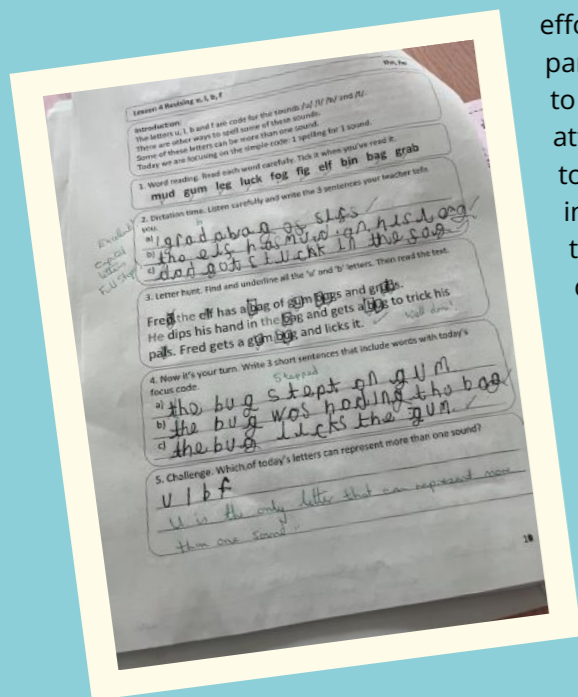 effo
par
to
at
to
in
t
Lesson 4 Revising u, l, b, f
Introduction:
The letters u, l, b and f are code for the sounds /u/ /l/ /b/ and /f/.
There are other ways to spell some of these sounds.
Some of these letters can be more than one sound.
Today we are focusing on the simple code: 1 spelling for 1 sound.
1. Word reading. Read each word carefully. Tick it when you've read it.
mud gum leg luck fog fig elf bin bag grab
2. Dictation time. Listen carefully and write the 3 sentences your teacher tells
you.
Excellent
Capital
letters
Full stops
a) I grad a bag of
b) the elf has mud on his
c) dad got stuck in the
3. Letter hunt. Find and underline all the 'u' and 'b' letters. Then read the text.
Fred the elf has a bag of gum bugs and grubs.
He dips his hand in the bag and gets a bug to trick his
pals. Fred gets a gum bug and licks it.
Well done!
4. Now it's your turn. Write 3 short sentences that include words with today's
focus code.
Stepped
a) the bug stept on gum
b) the bug was hoding the bag
c) the bug licks the gum.
5. Challenge. Which of today's letters can represent more than one sound?
u l b f
U is the only letter that can represent more
than one sound
10